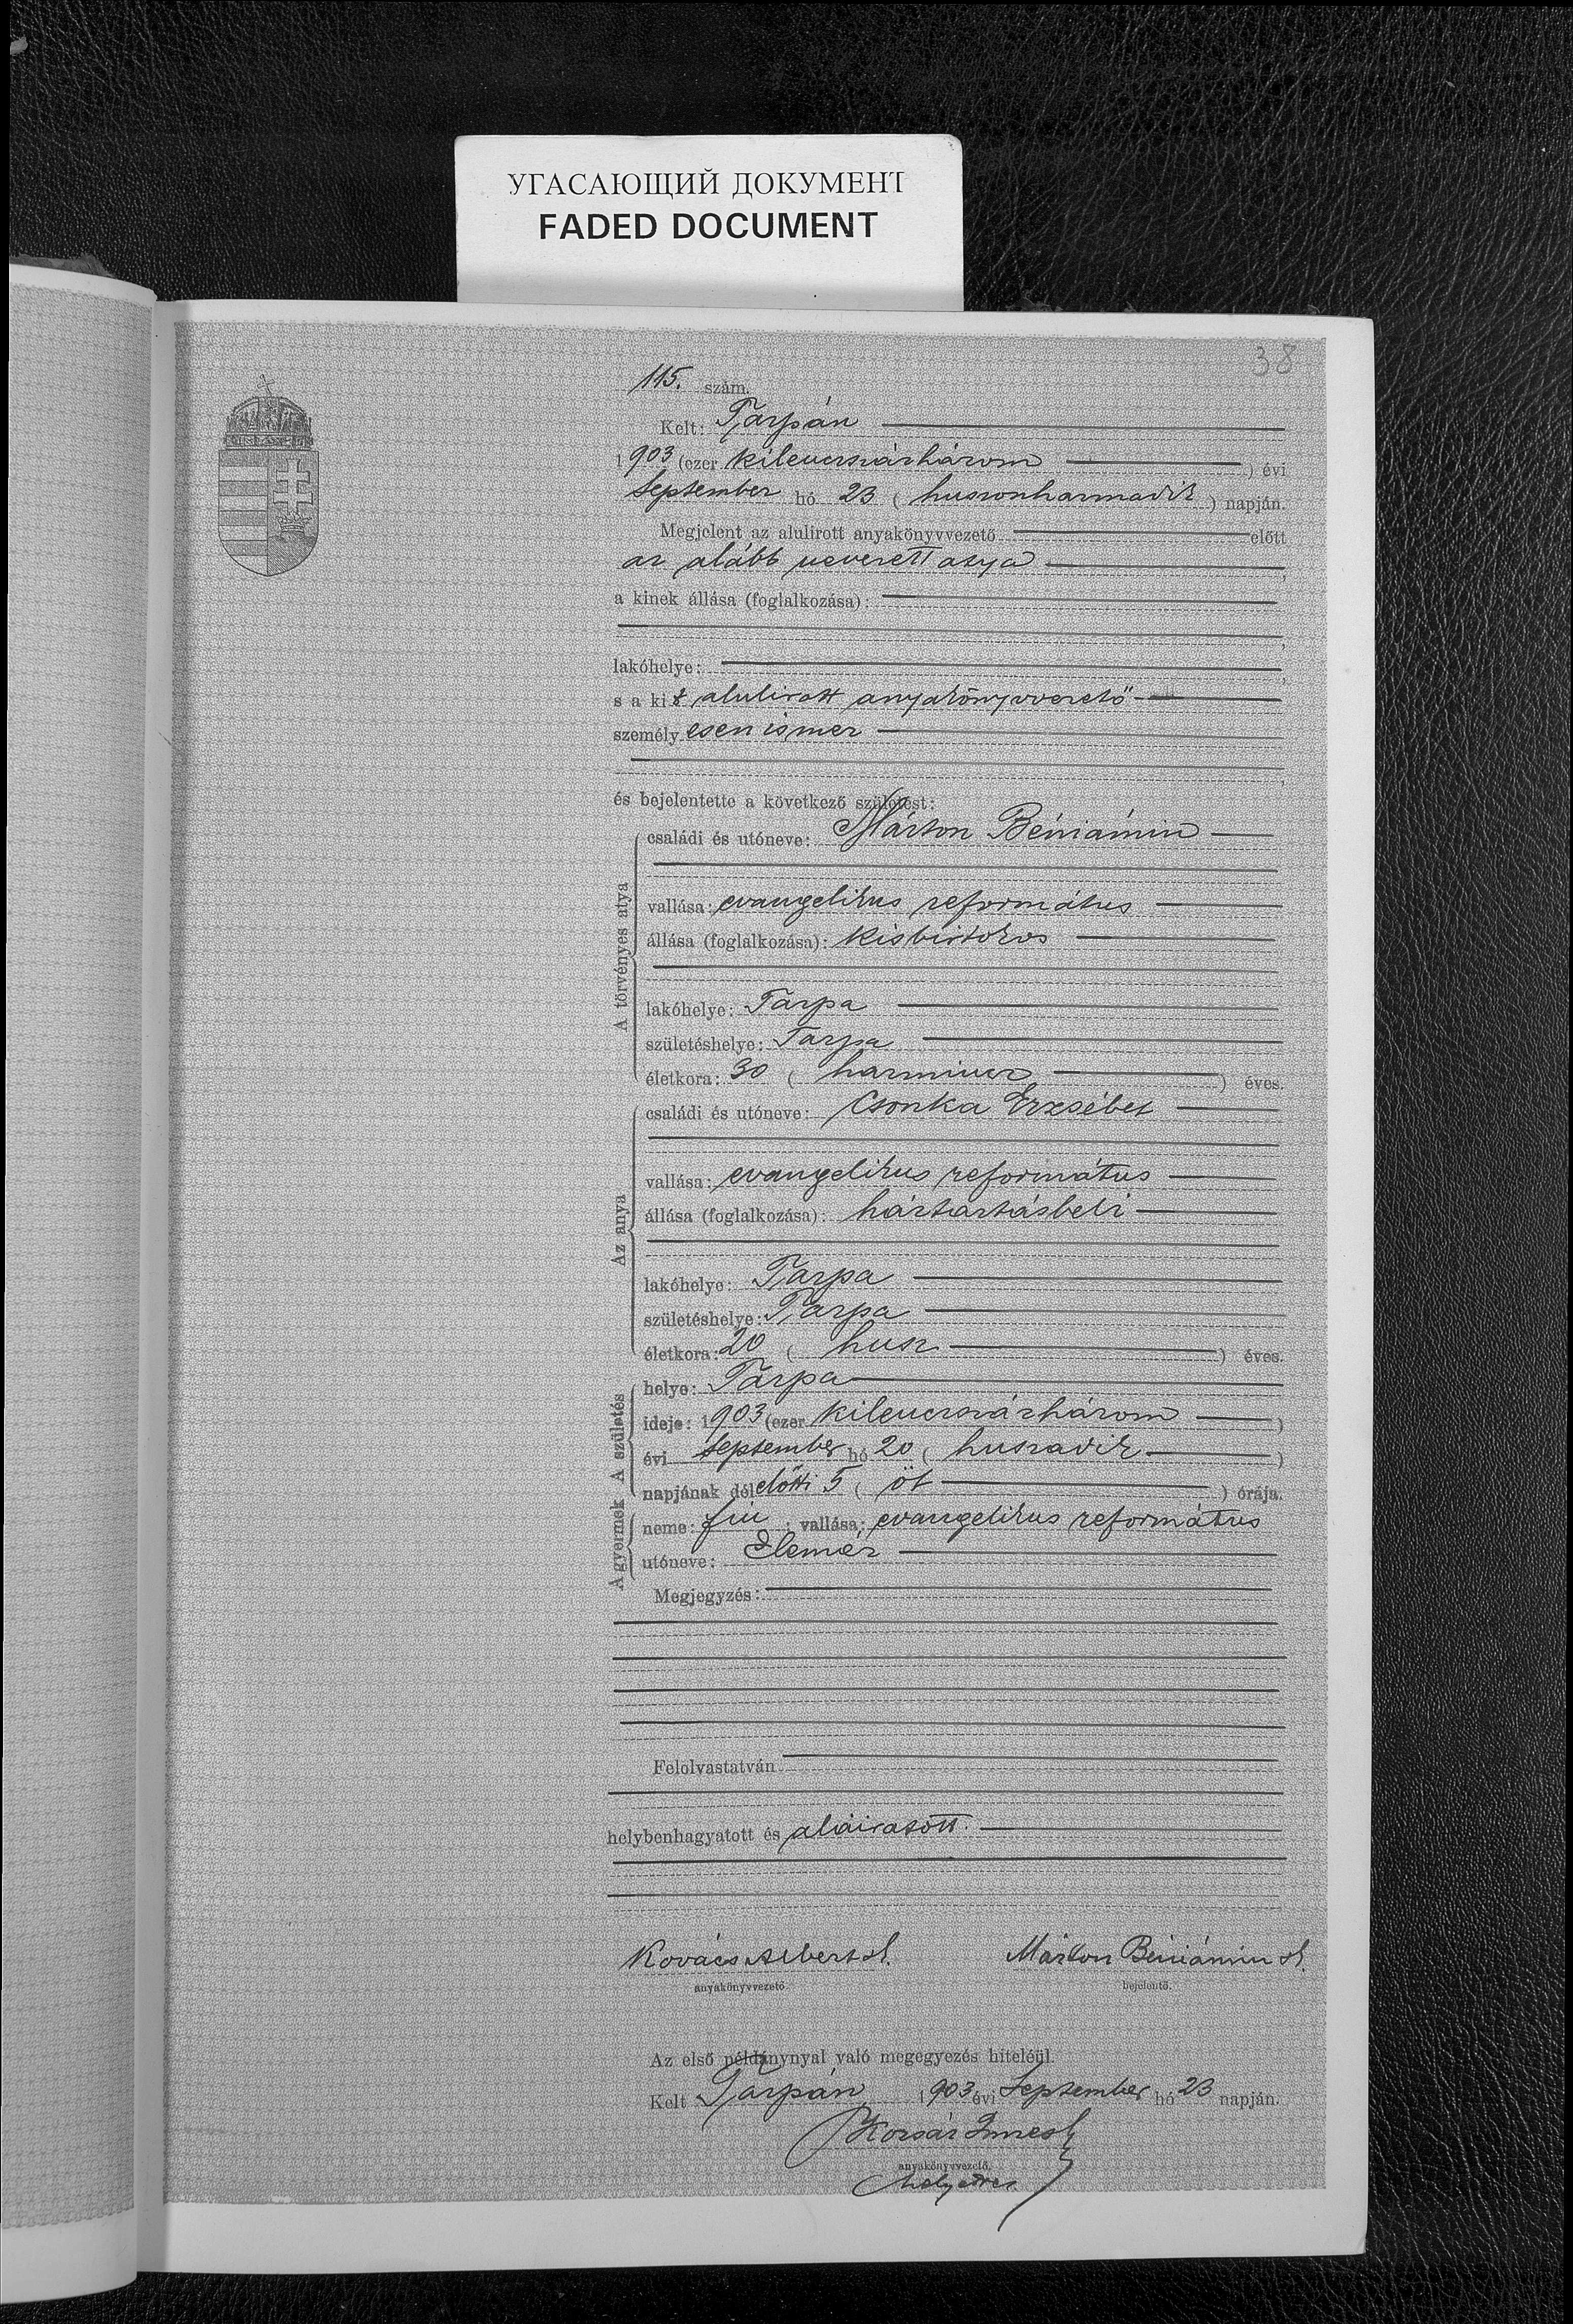 УГАСАЮЩИЙ ДОКУМЕНТ
FADED DOCUMENT
38
115. szám.
Kelt: Tarpán
1903 (ezer kilenczszázhárom) évi
September hó 23 (huszonharmadik) napján.
Megjelent az alulirott anyakönyvvezető előtt
az alább nevezett atya,
a kinek állása (foglalkozása):
lakóhelye:
s a kit alulirott anyakönyvvezető
személyesen ismer
és bejelentette a következő születést:
A törvényes atya
családi és utóneve: Márton Béniámin
vallása: evangelikus református
állása (foglalkozása): kisbirtokos
lakóhelye: Tarpa
születéshelye: Tarpa
életkora: 30 (harmincz) éves.
Az anya
családi és utóneve: Csonka Erzsébet
vallása: evangelikus református
állása (foglalkozása): háztartásbeli
lakóhelye: Tarpa
születéshelye: Tarpa
életkora: 20 (husz) éves.
A születés
helye: Tarpa
ideje: 1903 (ezer kilenczszázhárom)
évi September hó 20 (huszadik)
napjának délelőtti 5 (öt) órája.
A gyermek
neme: fiu; vallása: evangelikus református
utóneve: Elemér
Megjegyzés:
Felolvastatván
helybenhagyatott és aláiratott.
Kovács Albert s.k. Márton Béniámin s.k.
anyakönyvvezető. bejelentő.
Az első példánynyal való megegyezés hiteléül.
Kelt Tarpán 1903 évi September hó 23 napján.
Imre
anyakönyvvezető.
helyettes